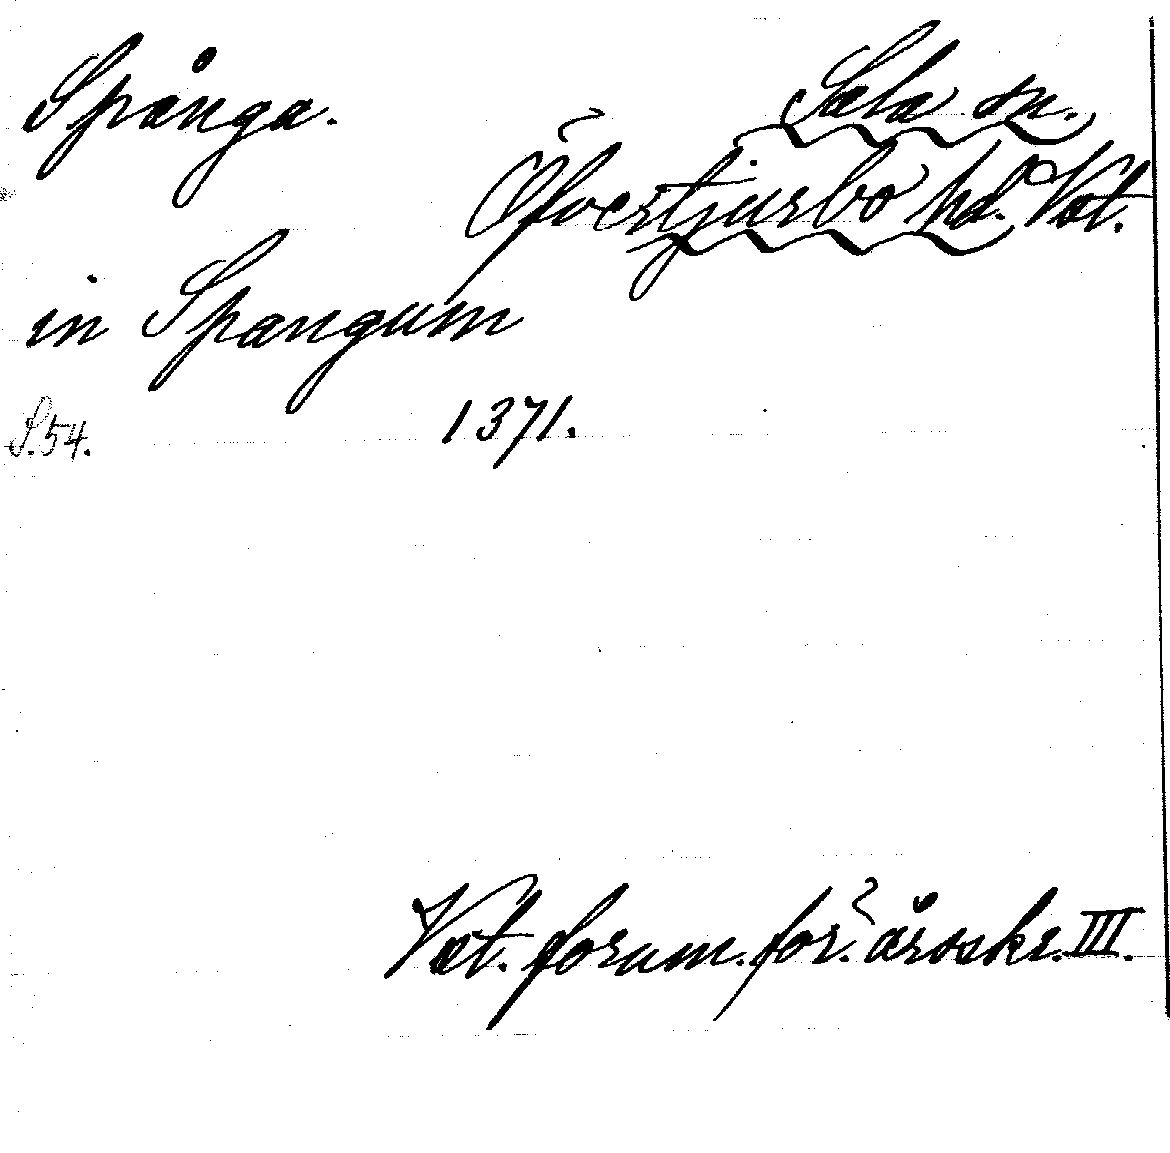 Spånga.
Sala sn.
Öfvertjurbo hd. Vst.
in Spangum
S.54.
1371.
Vst. fornm. för. årsskr. III.